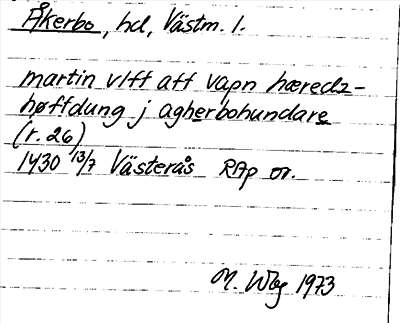 Åkerbo, hd, Västm. l.
martin vlff aff vapn hæredz-
høffdung j agherbohundare
(r. 26)
1430 13/7 Västerås RAp or.
M. Wbg 1973